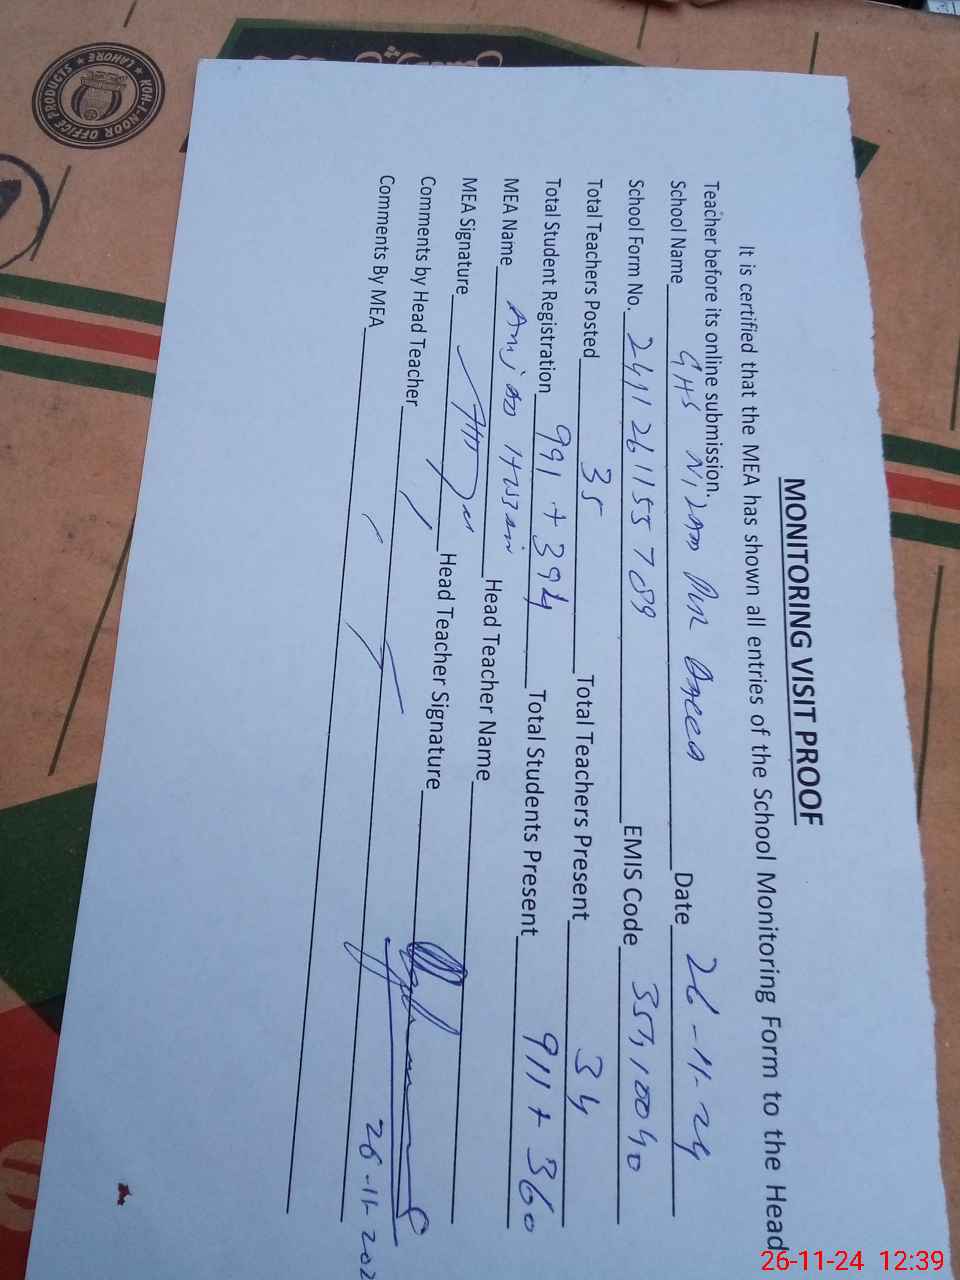 MONITORING VISIT PROOF
It is certified that the MEA has shown all entries of the School Monitoring Form to the Head
Teacher before its online submission.
School Name GHS Date 26-11-24
School Form No. 2411261155 7089 EMIS Code 35110040
Total Teachers Posted 35 Total Teachers Present 34
Total Student Registration 991 + 394 Total Students Present 911 + 360
MEA Name Amjad Hussain Head Teacher Name
MEA Signature Head Teacher Signature
Comments by Head Teacher
26-11-202
Comments By MEA
KOH-I-NOOR OFFICE PRODUCTS ★ LAHORE ★
26-11-24 12:39